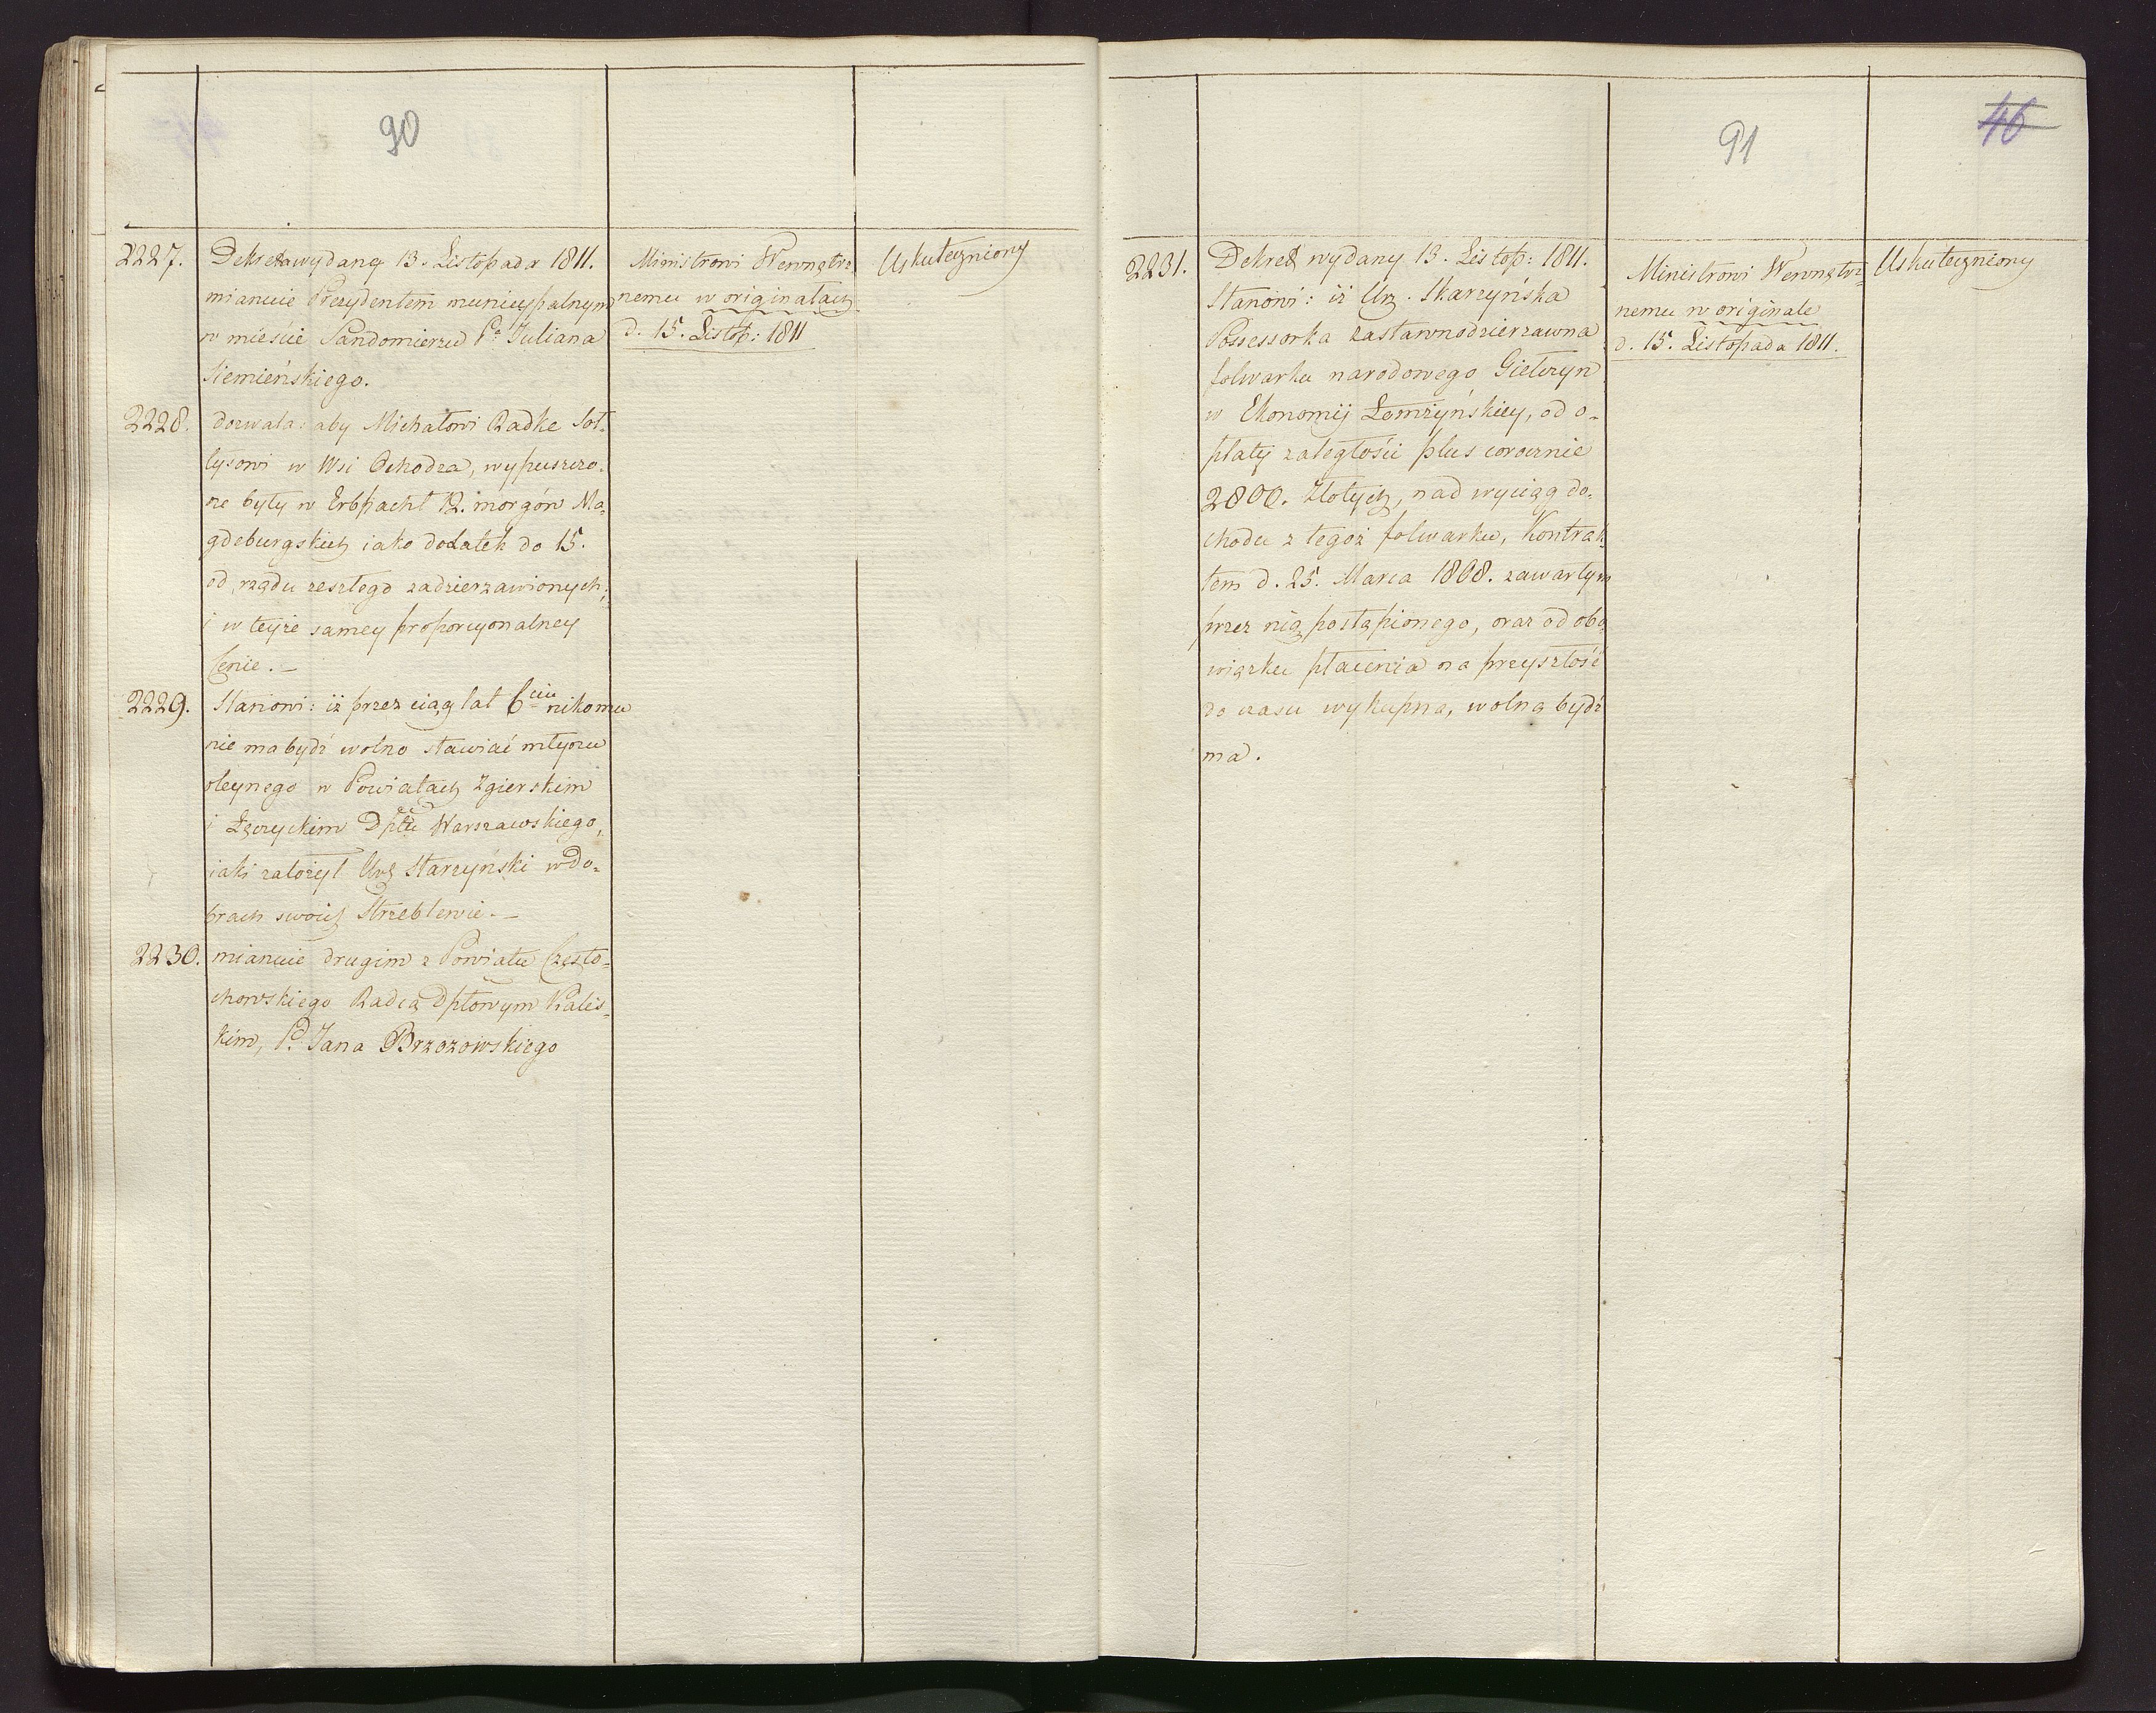 90
2227.
Dekreta wydany 13. Listopada 1811.
mianuie Prezydentem municypalnym
w mieście Sandomierzu Pa Juliana
Siemieńskiego.
2228.
dozwala: aby Michałowi Radke Soł-
tysowi w Wsi Ochodza, wypuszczo-
ne były w Erbpacht 12. morgów Ma-
gdeburgskich iako dodatek do 15.
od rządu zeszłego zadzierzawionych,
i w teyże samey proporcyonalney
Cenie. –
2229.
Stanowi: iż przez ciąg lat 6ciu nikomu
nie ma bydź wolno stawiać młynu
oleynego w Powiatach Zgierskim
i Łęczyckim Dptu Warszawskiego,
iaki założył Ur. Starzyński w do-
brach swoich Strzeblewie. –
2230.
mianuie drugim z Powiatu Często-
chowskiego Radcą Dptowym Kalis-
kim, P. Jana Brzozowskiego
Ministrowi Wewnętrz-
nemu w originałach
d. 15. Listop: 1811
Uskuteczniony
91
46
2231.
Dekret wydany 13. Listop: 1811.
Stanowi: iż Ur. Skarzyńska
Possessorka zastawnodzierzawna
folwarku narodowego Giełczyn
w Ekonomij Łomżyńskiey, od o-
płaty zaległości plus corocznie
2800. złotych, nad wyciąg do-
chodu z tegoż folwarku, Kontrak-
tem d. 25. Marca 1808. zawartym
przez nią postąpionego, oraz od obo-
wiązku płacenia na przyszłość
do czasu wykupna, wolną bydź
ma.
Ministrowi Wewnętrz-
nemu w originale
d. 15. Listopada 1811.
Uskuteczniony